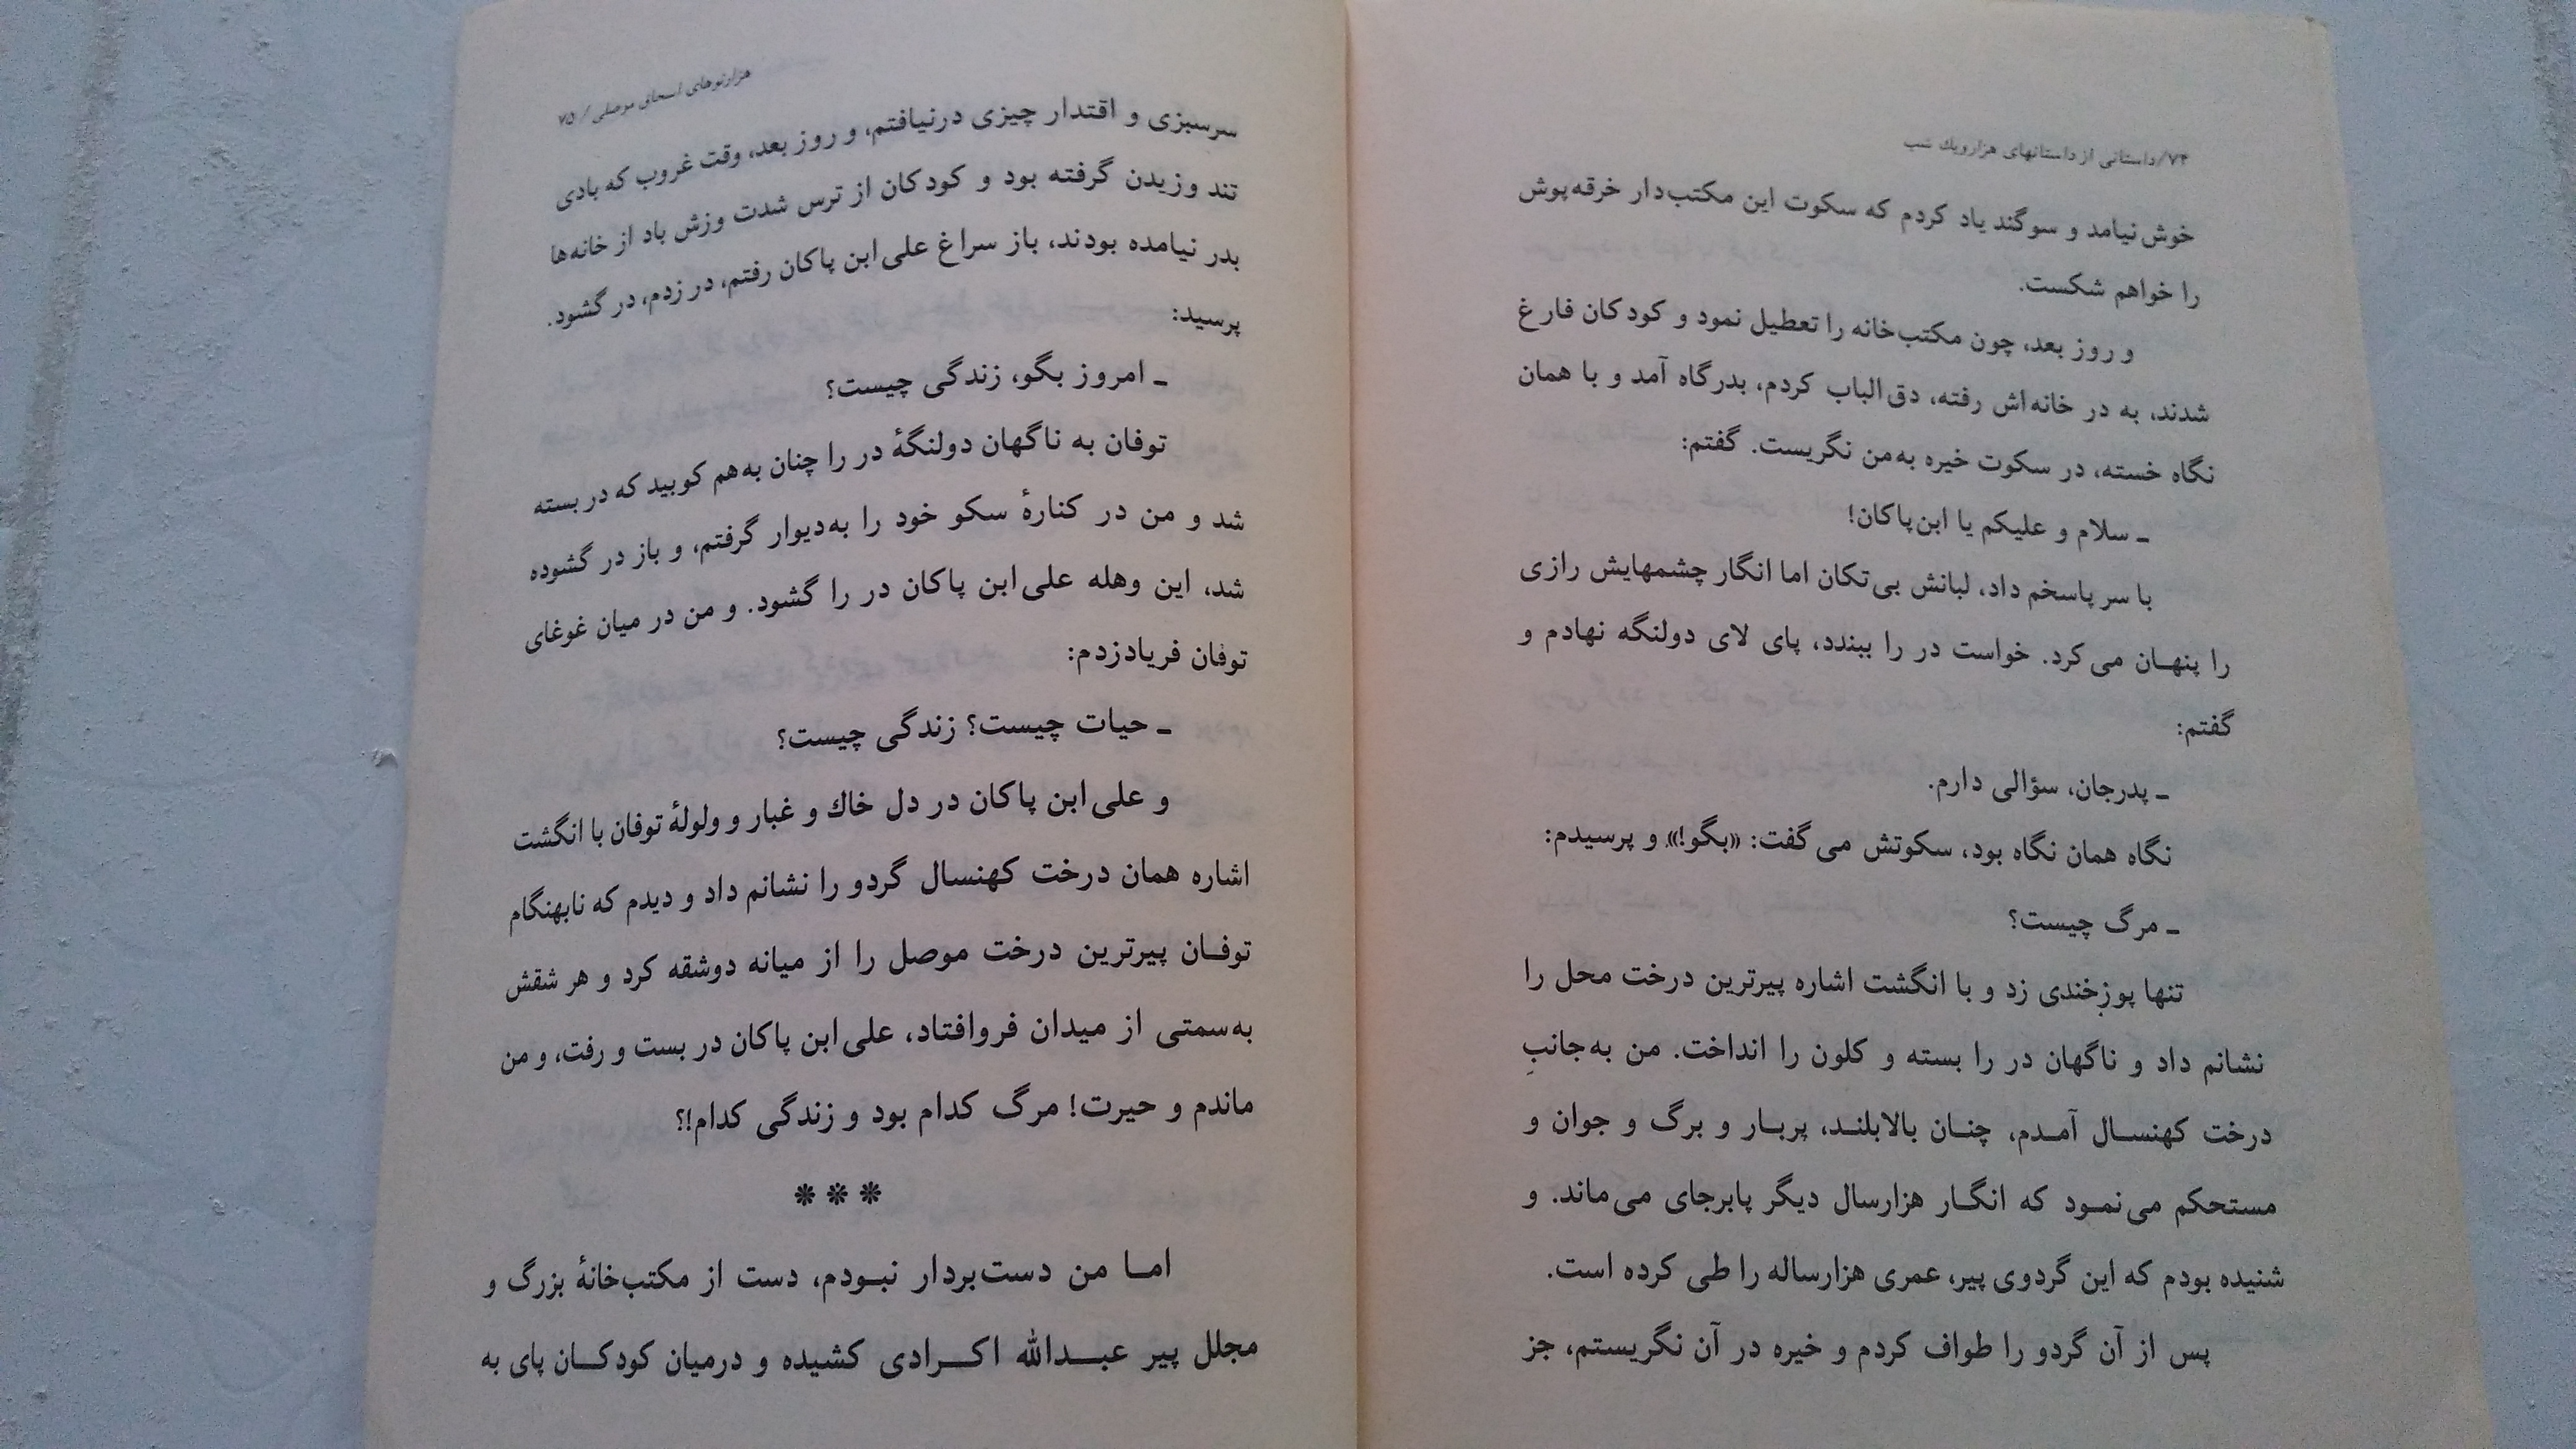 ۷۴/داستانی از داستانهای هزارویك شب
خوش‌نیامد و سوگند یاد کردم که سکوت این مکتب‌دار خرقه‌پوش
را خواهم شکست.
و روز بعد، چون مکتب‌خانه را تعطیل نمود و کودکان فارغ
شدند، به در خانه‌اش رفته، دق‌الباب کردم، بدرگاه آمد و با همان
نگاه خسته، در سکوت خیره به‌من نگریست. گفتم:
ـ سلام و علیکم یا ابن‌پاکان!
با سر پاسخم داد، لبانش بی‌تکان اما انگار چشمهایش رازی
را پنهـان می‌کرد. خواست در را ببندد، پای لای دولنگه نهادم و
گفتم:
ـ پدرجان، سؤالی دارم.
نگاه همان نگاه بود، سکوتش می‌گفت: «بگو!» و پرسیدم:
ـ مرگ چیست؟
تنها پوزخندی زد و با انگشت اشاره پیرترین درخت محل را
نشانم داد و ناگهان در را بسته و کلون را انداخت. من به‌جانبِ
درخت کهنسـال آمـدم، چنـان بالابلنـد، پربـار و برگ و جوان و
مستحکم می‌نمـود که انگـار هزارسال دیگر پابرجای می‌ماند. و
شنیده بودم که این گردوی پیر، عمری هزارساله را طی کرده است.
پس از آن گردو را طواف کردم و خیره در آن نگریستم، جز
هزارتوهای اسحاق موصلی / ۷۵
سرسبزی و اقتدار چیزی درنیافتم، و روز بعد، وقت غروب که بادی
تند وزیدن گرفته بود و کودکان از ترس شدت وزش باد از خانه‌ها
بدر نیامده بودند، باز سراغ علی‌ابن پاکان رفتم، در زدم، در گشود.
پرسید:
ـ امروز بگو، زندگی چیست؟
توفان به ناگهان دولنگهٔ در را چنان به‌هم کوبید که در بسته
شد و من در کنارهٔ سکو خود را به‌دیوار گرفتم، و باز در گشوده
شد، این وهله علی‌ابن پاکان در را گشود. و من در میان غوغای
توفان فریادزدم:
ـ حیات چیست؟ زندگی چیست؟
و علی‌ابن پاکان در دل خاك و غبار و ولولهٔ توفان با انگشت
اشاره همان درخت کهنسال گردو را نشانم داد و دیدم که نابهنگام
توفـان پیرترین درخت موصل را از میانه دوشقه کرد و هر شقش
به‌سمتی از میدان فروافتاد، علی‌ابن پاکان در بست و رفت، و من
ماندم و حیرت! مرگ کدام بود و زندگی کدام!؟
* * *
امـا من دست‌بردار نبـودم، دست از مکتب‌خانهٔ بزرگ و
مجلل پیر عبـدالله اکـرادی کشیده و درمیان کودکـان پای به